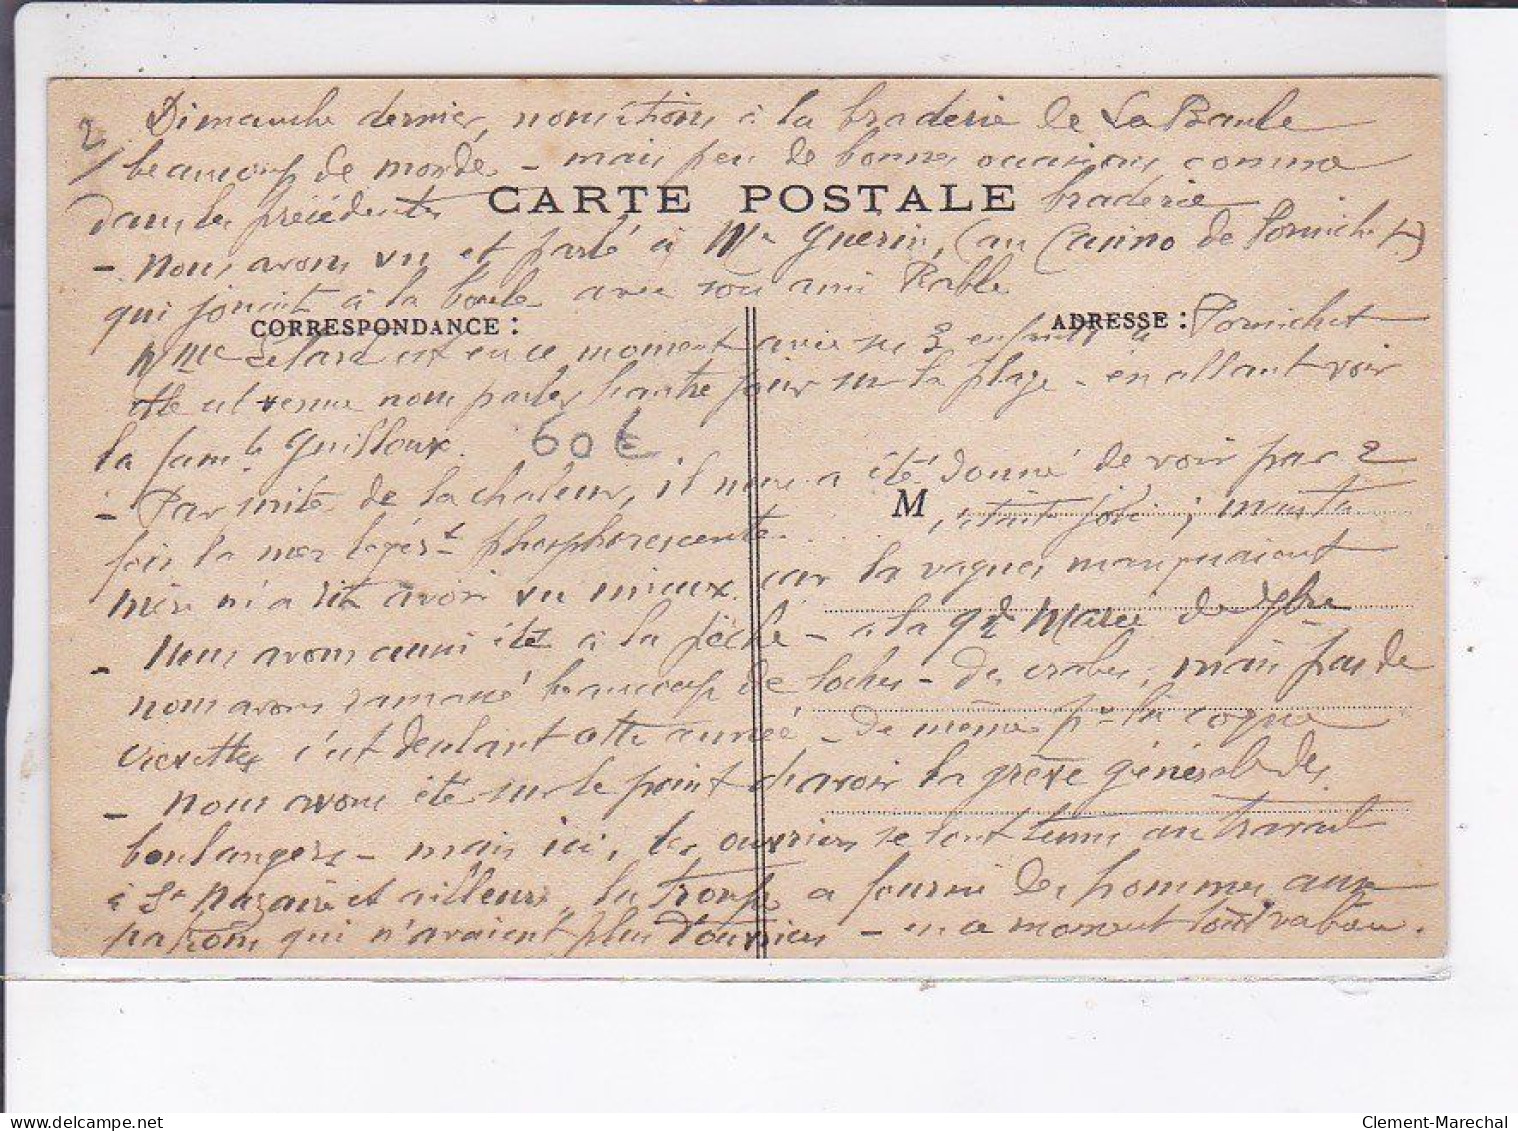 2/ Dimanche dernier, nous étions à la braderie de La Baule
beaucoup de monde - mais peu de bonnes occasions comme
dans les précédentes braderie
CARTE POSTALE
- Nous avons vu et parlé à Mr Guerin, (au Casino de Pornichet)
qui jouait à la boule avec son ami Rable
CORRESPONDANCE :
ADRESSE :
Mme est en ce moment avec ses 3 enfants à Pornichet
elle est venue nous parler l'autre jour sur la plage - en allant voir
la famle Guilloux.
60 €
- Par suite de la chaleur, il nous a été donné de voir par 2
M
fois la mer légèrt phosphorescente. c'était joli ; mais ta
mère m'a dit avoir vu mieux. car les vagues manquaient
- Nous avons aussi été à la pêche - à la gde Marée de 7bre
nous avons ramassé beaucoup de loches - des crabes, mais pas de
crevettes c'est désolant cette année - de même pr les coques
- Nous avons été sur le point d'avoir la grève générale des
boulangers - mais ici, les ouvriers se sont tenus au travail
à St Nazaire et ailleurs, la troupe a fourni des hommes aux
patrons qui n'avaient plus d'ouvriers - en ce moment tout va bien.
Clement-Marechal